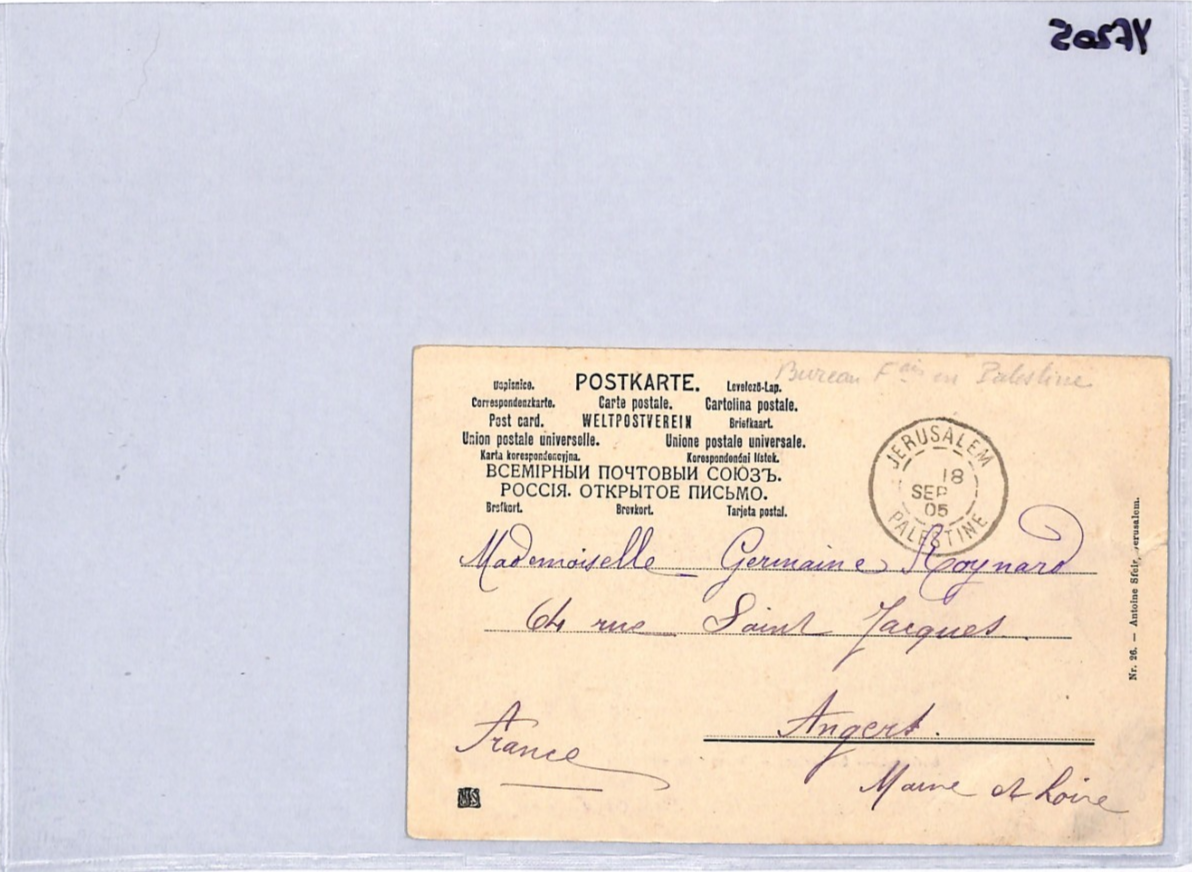 YF205
Bureau Fais en Palestine
Dopisnice. POSTKARTE. Levelező-Lap.
Correspondenzkarte. Carte postale. Cartolina postale.
Post card. WELTPOSTVEREIN Briefkaart.
Union postale universelle. Unione postale universale.
Karta korespondencyjna. Korespondenční lístek.
ВСЕМІРНЫЙ ПОЧТОВЫЙ СОЮЗЪ.
РОССІЯ. ОТКРЫТОЕ ПИСЬМО.
Brefkort. Brevkort. Tarjeta postal.
JERUSALEM
18
SEP
05
PALESTINE
Mademoiselle Germaine Roynard
64 rue Saint Jacques.
Angers.
France
Maine et Loire
Nr. 26. — Antoine Sfeir, Jerusalem.